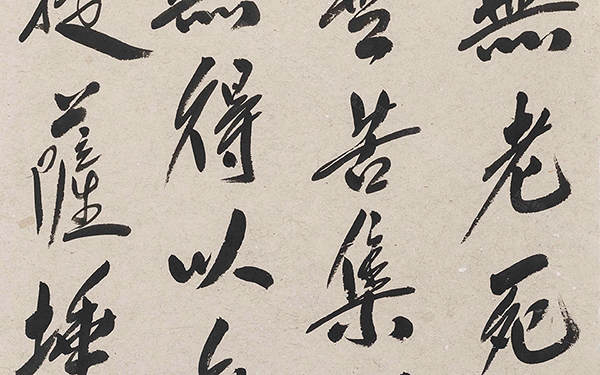 無老死
苦集
無得以
薩埵